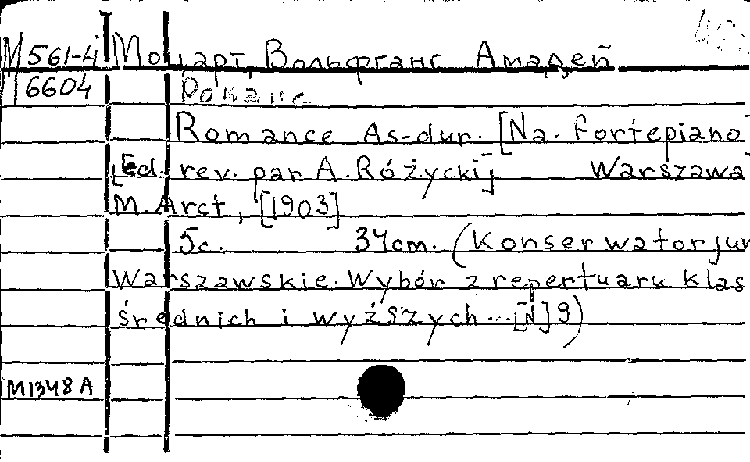 М 561-4 Моцарт, Вольфганг Амадей
М 6604 Романс
Romance As-dur. [Na. fortepiano]
[Ed. rev. par A. Różycki] Warszawa
M. Arct, [1903]
5c. 34cm. (Konserwatorjum
Warszawskie. Wybór z repertuaru klas
średnich i wyższych...[N] 9)
M1348A